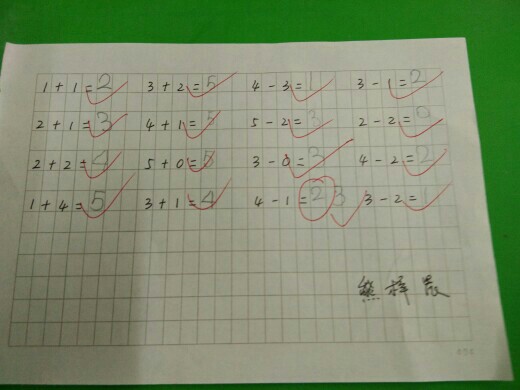 1 + 1 = 2 3 + 2 = 5 4 - 3 = 1 3 - 1 = 2
2 + 1 = 3 4 + 1 = 5 5 - 2 = 3 2 - 2 = 0
2 + 2 = 4 5 + 0 = 5 3 - 0 = 3 4 - 2 = 2
1 + 4 = 5 3 + 1 = 4 4 - 1 = 2 3 3 - 2 = 1
熊梓晨